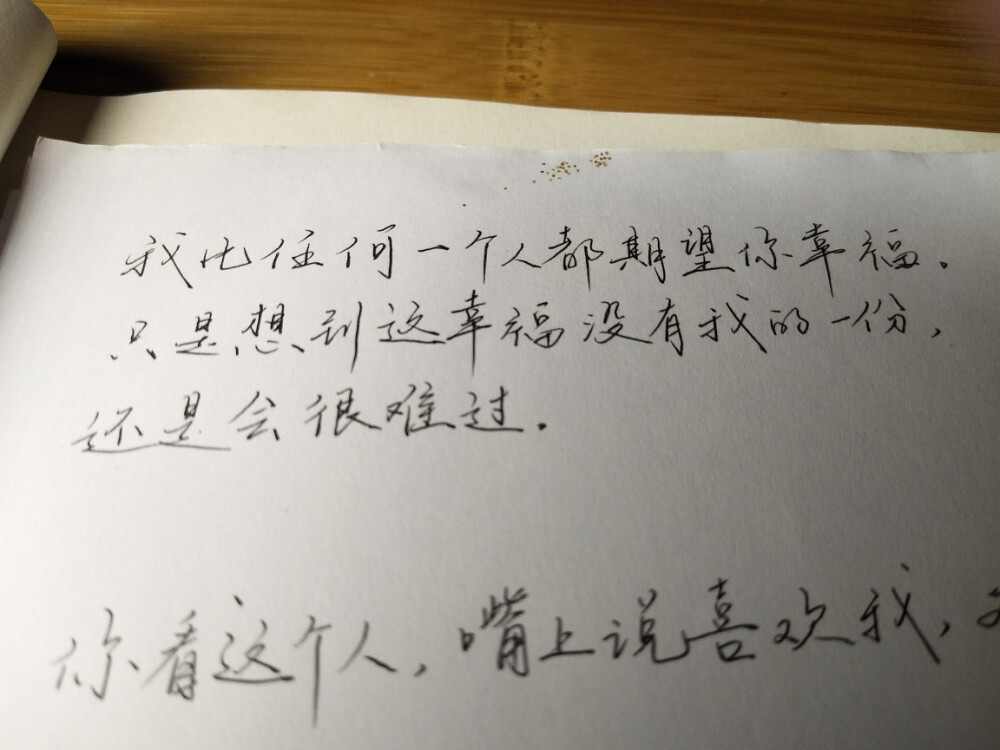 我比任何一个人都期望你幸福.
只是想到这幸福没有我的一份,
还是会很难过.
你看这个人,嘴上说喜欢我,